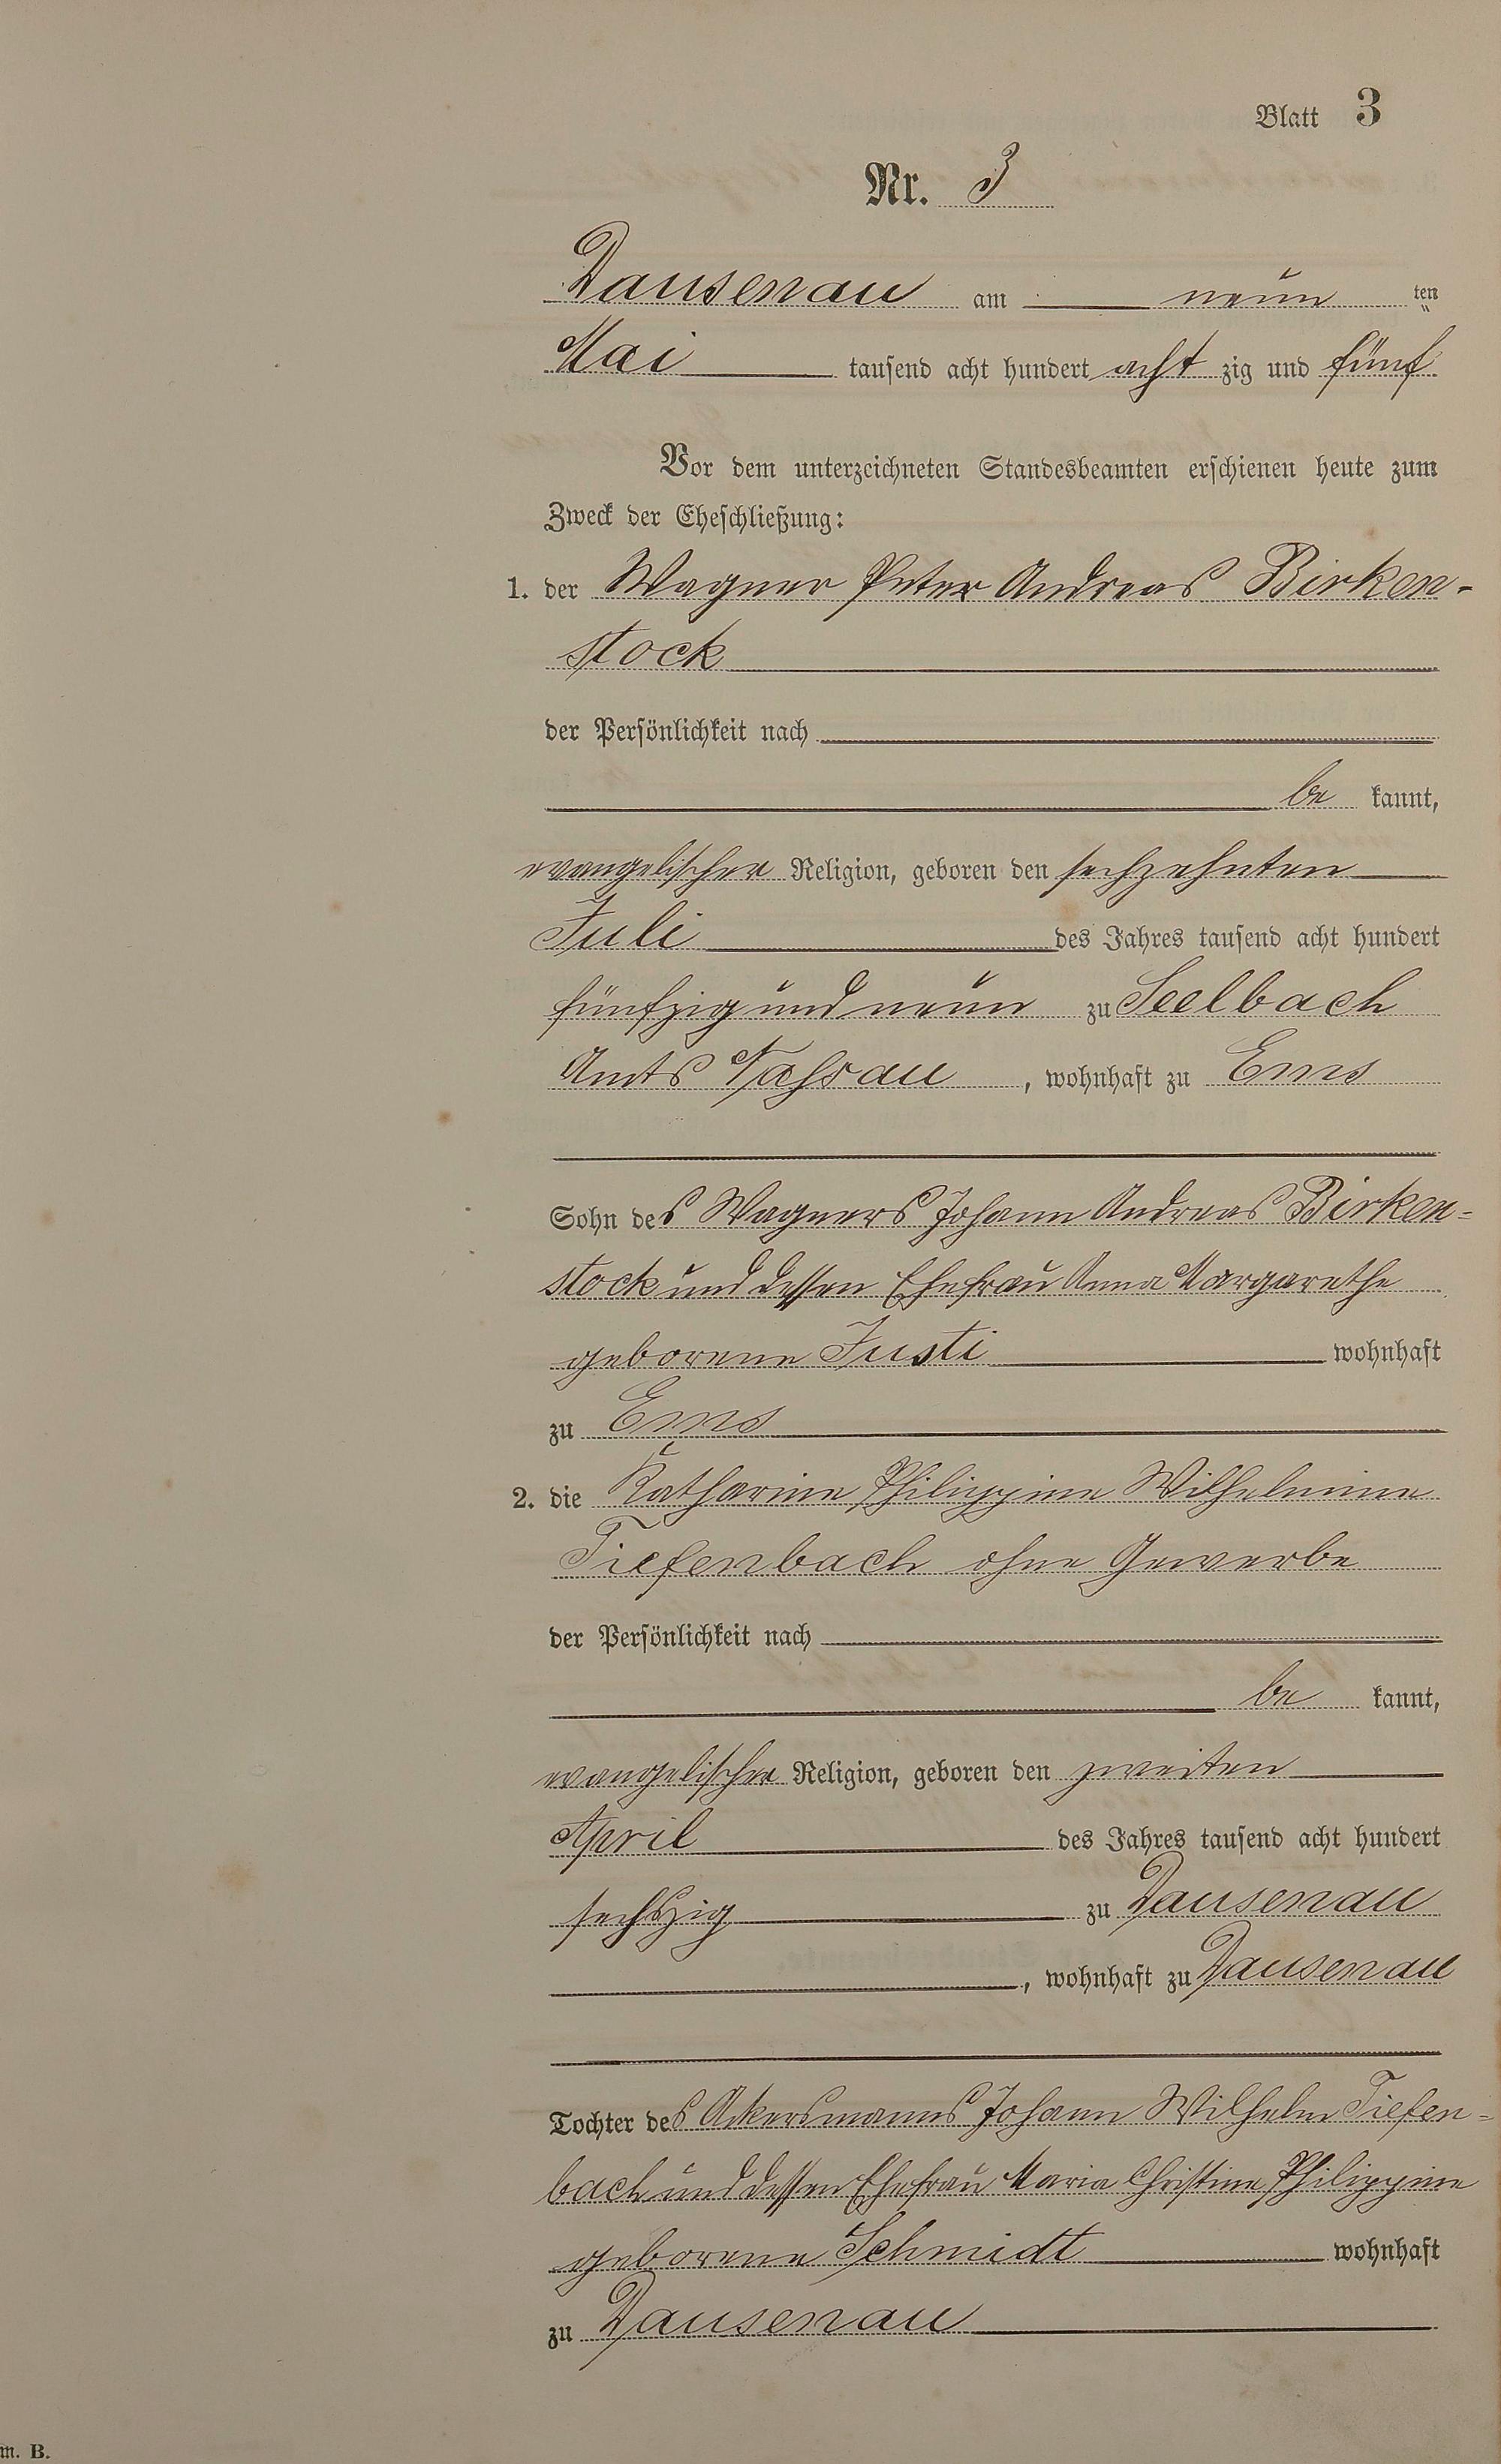 Blatt 3
Nr. 3
Dausenau am neun ten
Mai tausend acht hundert acht zig und fünf
Vor dem unterzeichneten Standesbeamten erschienen heute zum
Zweck der Eheschließung:
1. der Wagner Peter Andreas Birken-
stock
der Persönlichkeit nach
be kannt,
evangelischer Religion, geboren den sechzehnten
Juli des Jahres tausend acht hundert
fünfzig und neun zu Seelbach
Amts Nassau, wohnhaft zu Ems
Sohn des Wagners Johann Andreas Birken=
stock und dessen Ehefrau Anna Margarethe
geborene Justi wohnhaft
zu Ems
2. die Katharine Philippine Wilhelmine
Tiefenbach ohne Gewerbe
der Persönlichkeit nach
be kannt,
evangelischer Religion, geboren den zweiten
April des Jahres tausend acht hundert
sechszig zu Dausenau
, wohnhaft zu Dausenau
Tochter des Ackersmanns Johann Wilhelm Tiefen=
bach und dessen Ehefrau Maria Christine Philippine
geborene Schmidt wohnhaft
zu Dausenau
m. B.